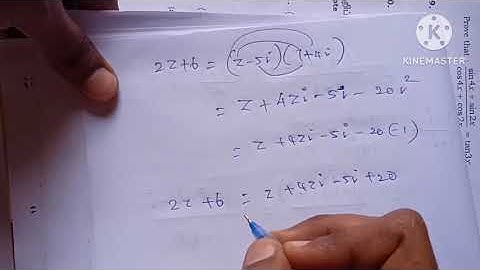 2z+6 = (z-5i)(1+4i)
= z+4zi-5i-20i²
= z+4zi-5i-20(-1)
2z+6 = z+4zi-5i+20
KINEMASTER
Prove that sin4x + sin2x / cos4x + cos2x = tan3x